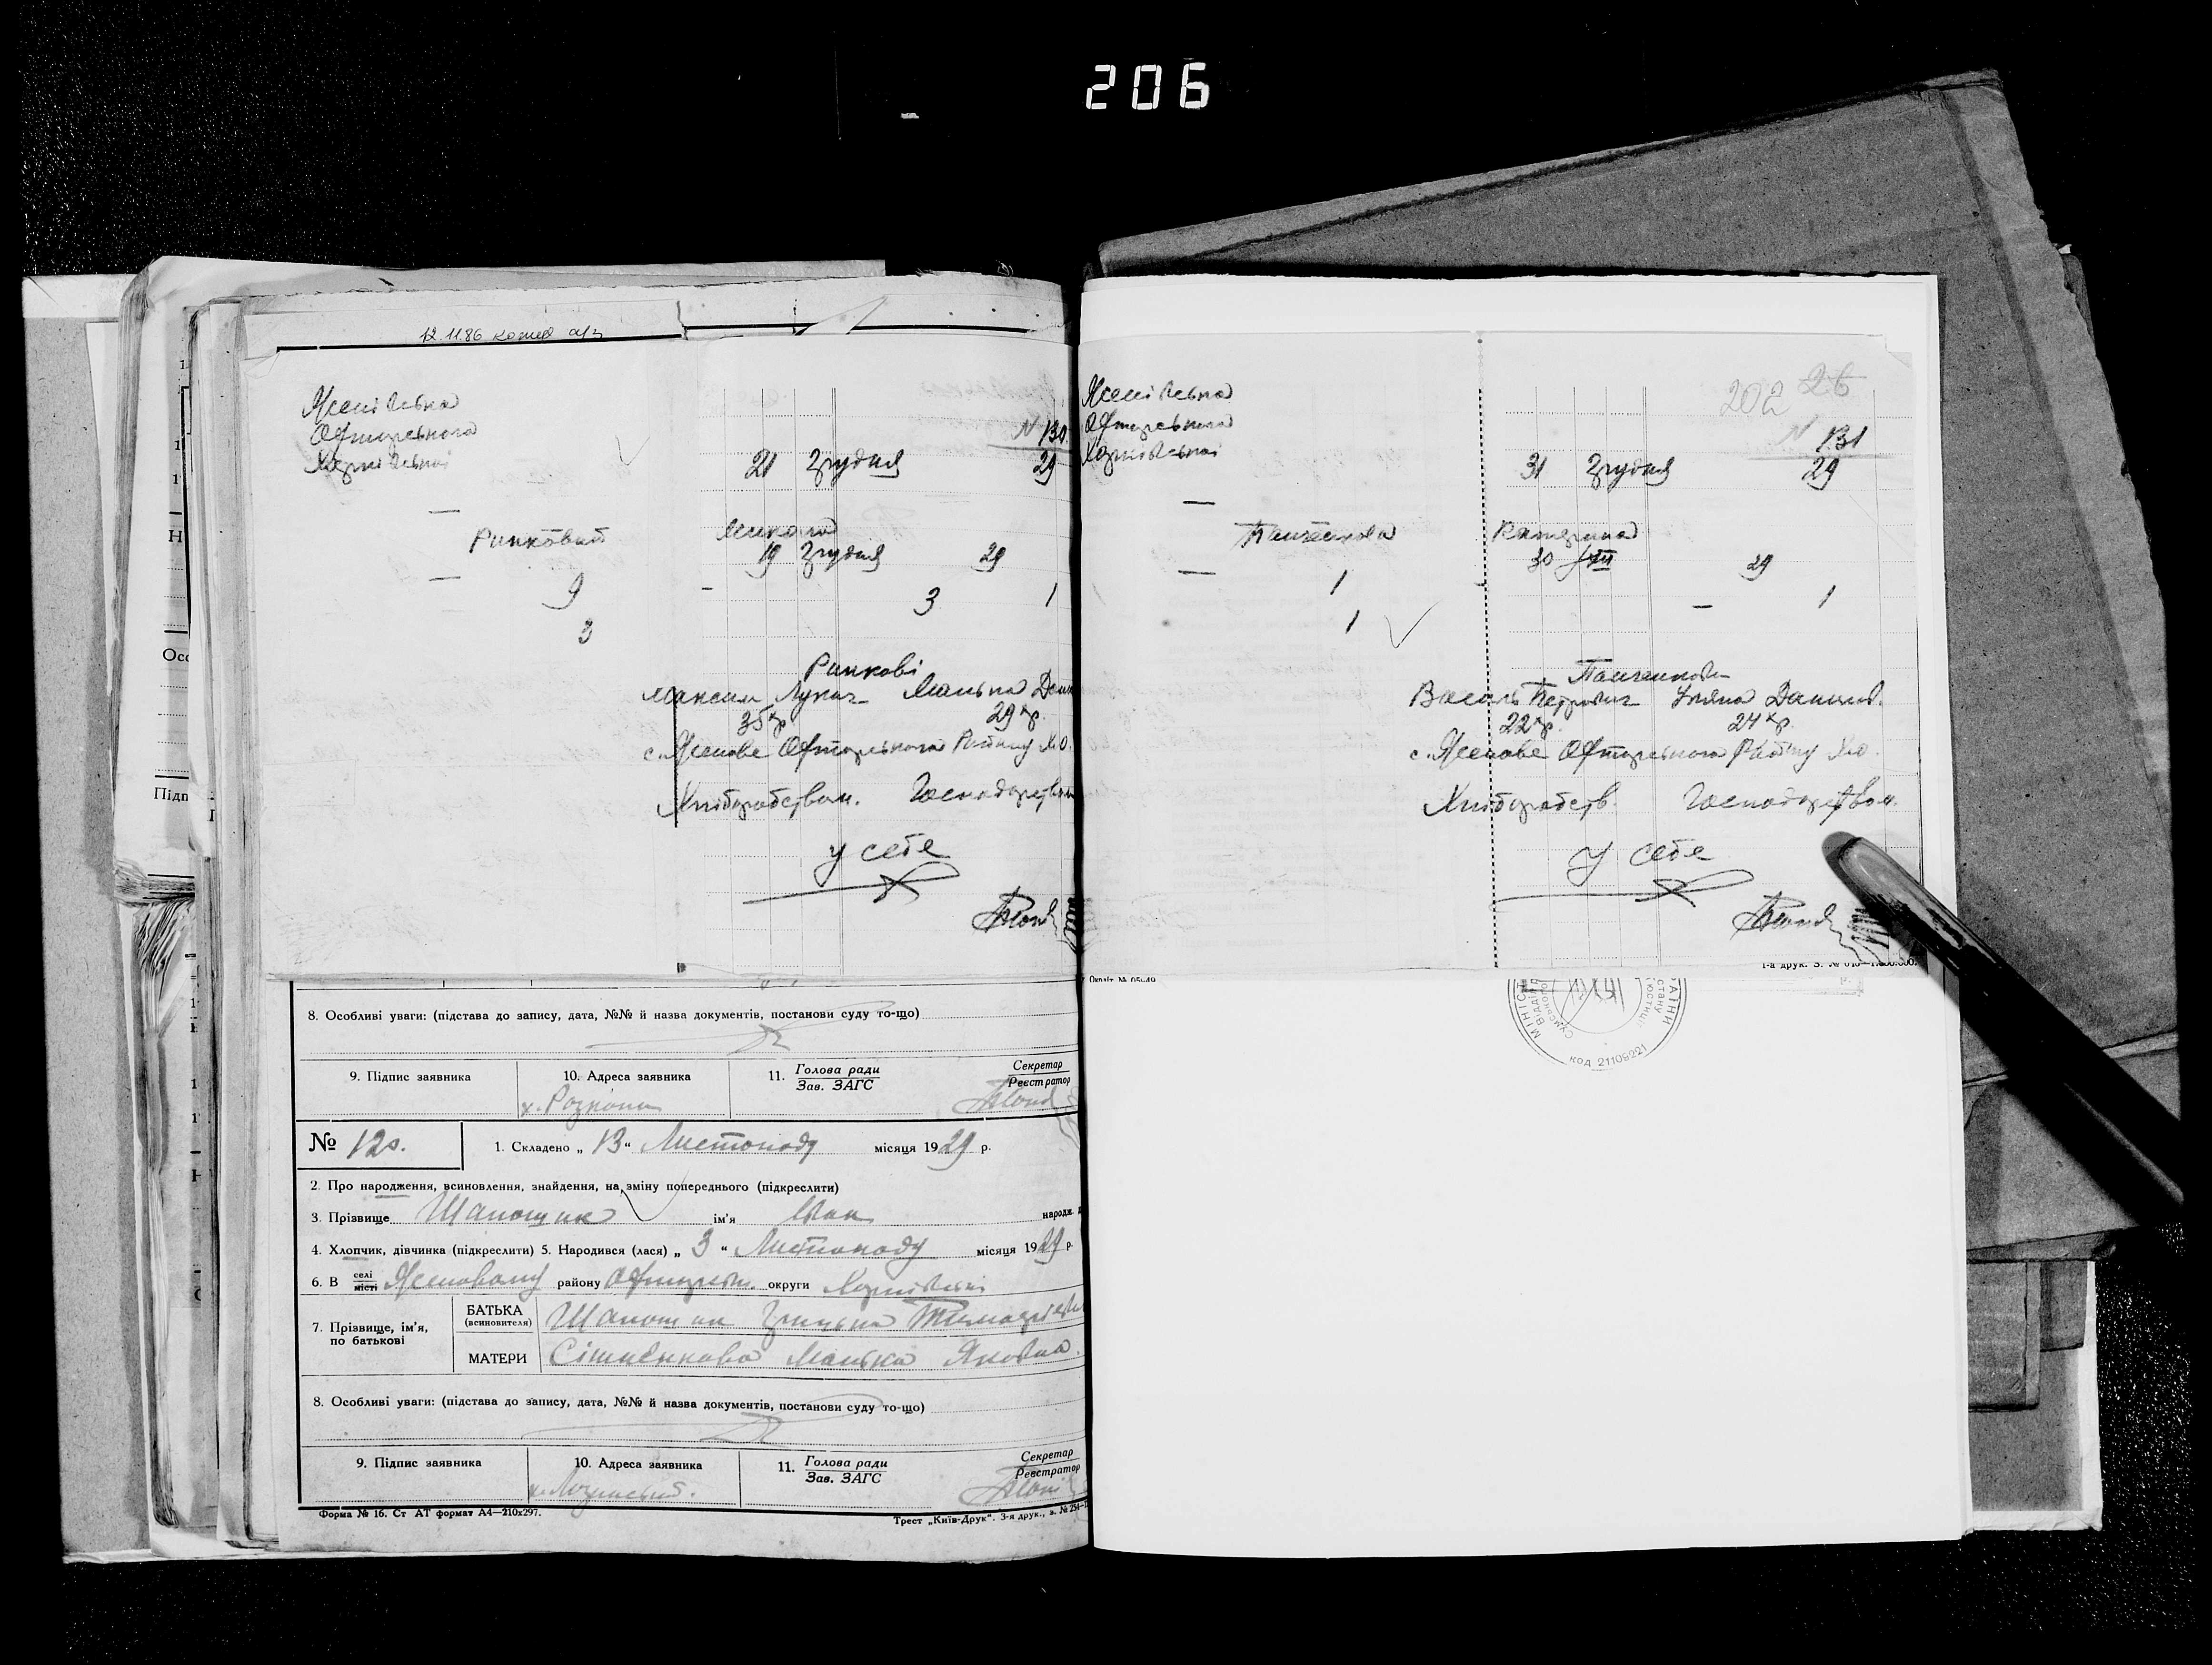 206
12.11.86
Ясенівська
Охтирського
Харківської
N 130
21 Грудня 29
—
Ринковий Микола
19 Грудня 29
—
9 - 3 1
3
Ринкові
Максим Лукич Манька
35 р. 29 р.
с. Ясенове Охтирського Району Х.О.
Хліборобством. Господарством
у себе
8. Особливі уваги: (підстава до запису, дата, №№ й назва документів, постанови суду то-що)
9. Підпис заявника
10. Адреса заявника
11. Голова ради
Зав. ЗАГС
Секретар
Реєстратор
№ 120.
1. Складено „ 13 “ Листопаду місяця 1929 р.
2. Про народження, всиновлення, знайдення, на зміну попереднього (підкреслити)
3. Прізвище Шапошник ім'я Іван народж.
4. Хлопчик, дівчинка (підкреслити) 5. Народився (лася) „ 3 “ Листопаду місяця 1929 р.
6. В селі
місті Ясеновому району Охтирськ. округи Харківської
7. Прізвище, ім'я, по батькові
БАТЬКА
(всиновителя)
Шапошник Грицько
МАТЕРИ
Манька Яковна.
8. Особливі уваги: (підстава до запису, дата, №№ й назва документів, постанови суду то-що)
9. Підпис заявника
10. Адреса заявника
11. Голова ради
Зав. ЗАГС
Секретар
Реєстратор
Форма № 16. Ст АТ формат А4—210х297.
Трест „Київ-Друк“. 3-я друк., з. № 254
Ясенівська
Охтирського
Харківської
202 26
N 131
31 Грудня 29
—
Панченкова Катерина
30 XII 29
—
1 — 1
1
Панченкови
Василь Петрович Уляна Данилов.
22 р. 24 р.
с. Ясенове Охтирського Району Х.О.
Хліборобств. Господарством.
У себе
код 21109221